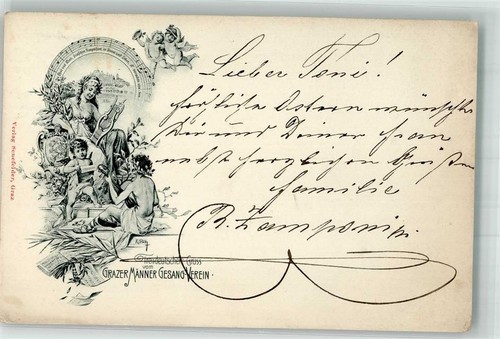 Lieber Toni!
fröhliche Ostern wünscht
Dir und Deiner Frau
nebst herzlichen Grüßen
Familie
R. Zamponi
Treudeutschen Gruss
vom
GRAZER MÄNNER GESANG-VEREIN
Verlag Senefelder, Graz